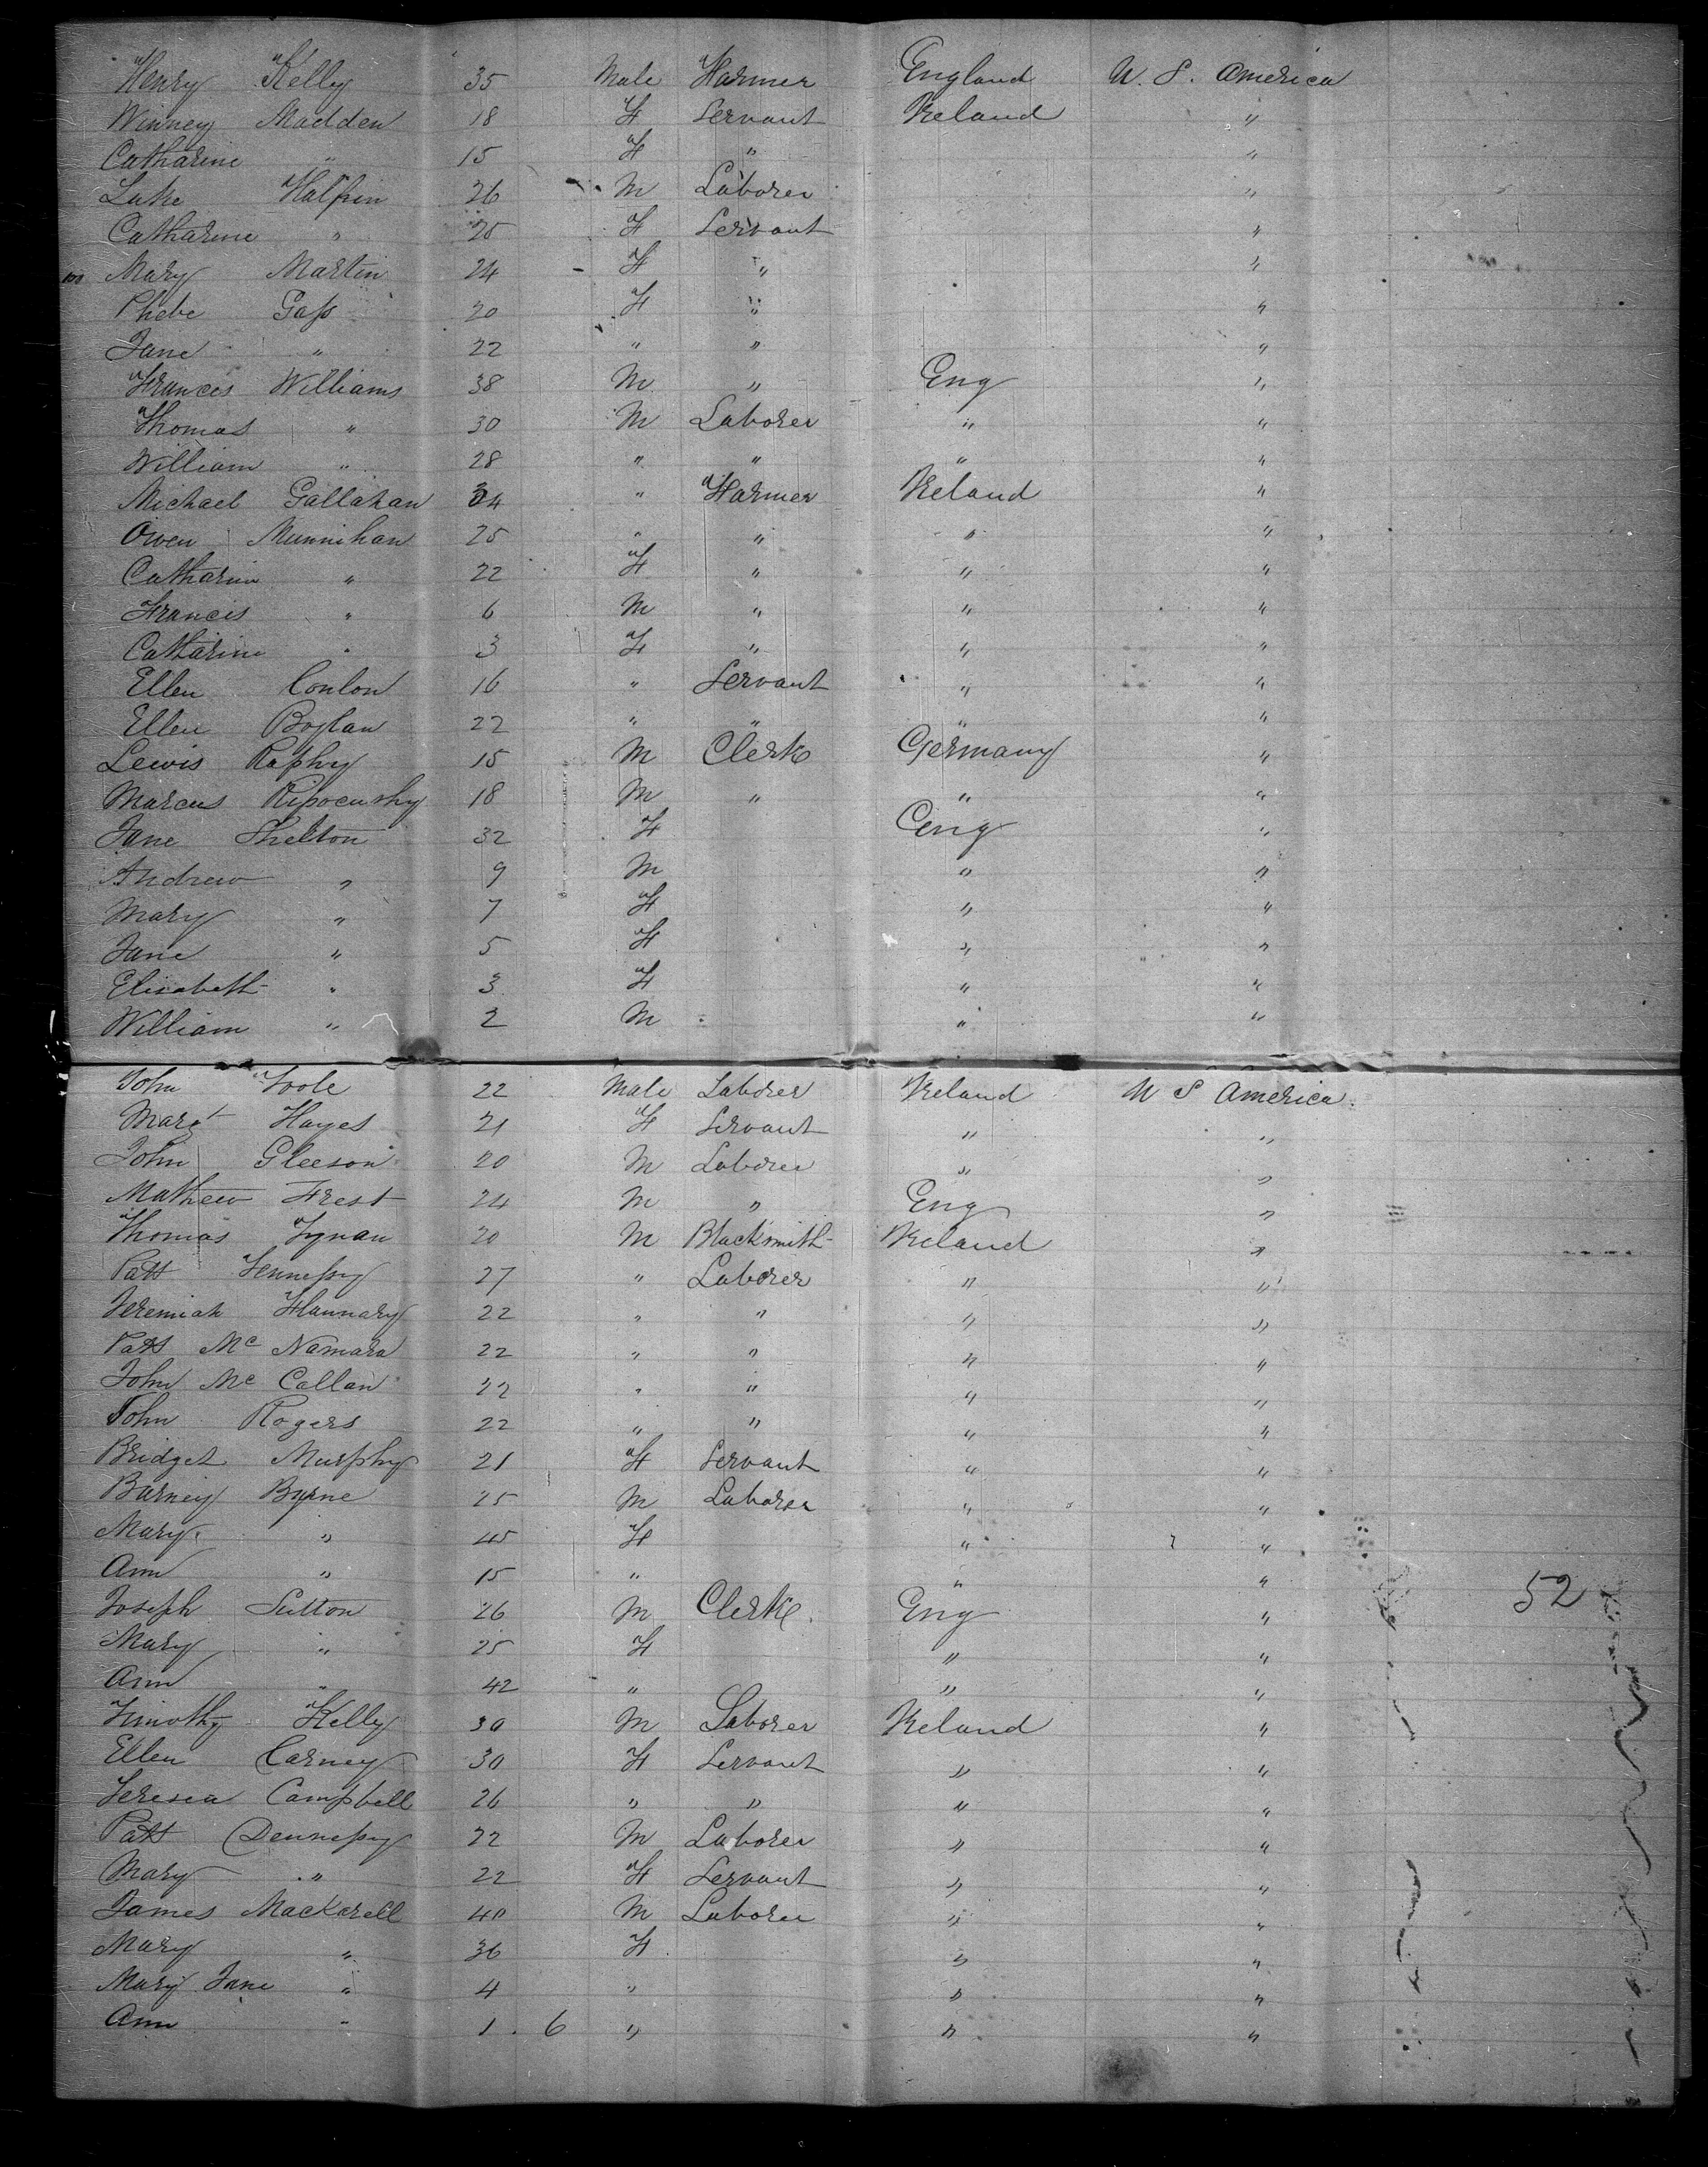 Henry Kelly 35 Male Farmer England U. S. America
Winney Madden 18 F Servant Ireland "
Catharine " 15 F " "
Luke Halpin 26 M Laborer "
Catharine " 25 F Servant "
100 Mary Martin 24 F " "
Phebe Gass 20 F " "
Jane " 22 " " "
Frances Williams 38 M " Eng "
Thomas " 30 M Laborer " "
William " 28 " " " "
Michael Gallahan 34 " Farmer Ireland "
Owen Munnihan 25 " " " "
Catharin " 22 F " " "
Francis " 6 M " " "
Catharine " 3 F " " "
Ellen Conlon 16 " Servant " "
Ellen Boylan 22 " " " "
Lewis Raphy 15 M Clerk Germany "
Marcus 18 M " " "
Jane Shelton 32 F Eng "
Andrew " 9 M " "
Mary " 7 F " "
Jane " 5 F " "
Elizabeth " 3 F " "
William " 2 M " "
John Toole 22 Male Laborer Ireland U S America
Margt Hayes 21 F Servant " "
John Gleeson 20 M Laborer " "
Mathew Frest 24 M " Eng "
Thomas Tynan 20 M Blacksmith Ireland "
Patt Fennessy 27 " Laborer " "
Jeremiah Flannary 22 " " " "
Patt Mc Namara 22 " " " "
John Mc Callan 22 " " " "
John Rogers 22 " " " "
Bridget Murphy 21 F Servant " "
Barney Byrne 25 M Laborer " "
Mary " 45 F " "
Ann " 15 " " "
Joseph Sutton 26 M Clerk Eng " 52
Mary " 25 F " "
Ann " 42 " " "
Timothy Kelly 30 M Laborer Ireland "
Ellen Carney 30 F Servant " "
Teresea Campbell 26 " " " "
Patt Dennessy 22 M Laborer " "
Mary " 22 F Servant " "
James Mackarell 40 M Laborer " "
Mary " 36 F " "
Mary Jane " 4 " " "
Ann " 1 . 6 " " "